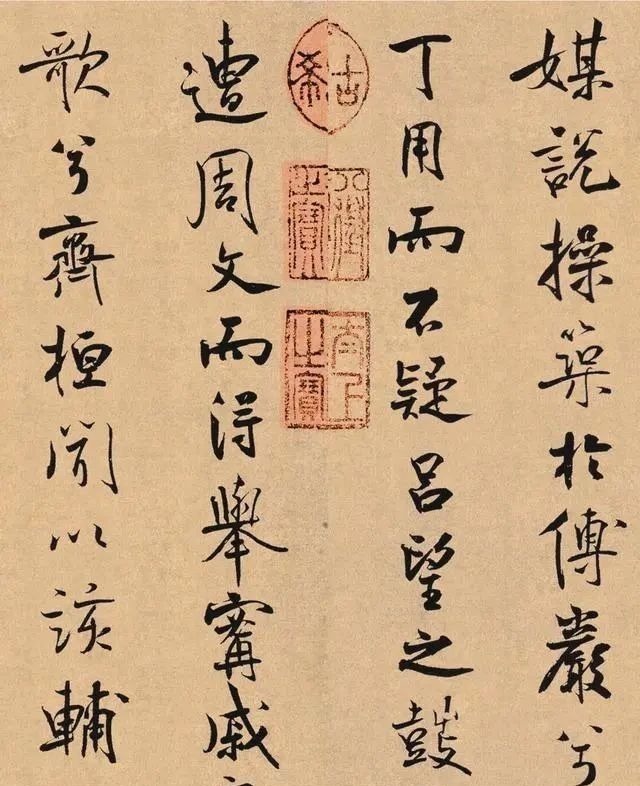 媒說操築於傅巖兮
丁用而不疑呂望之鼓
古希
之寶
太上之寶
遭周文而得舉甯戚
歌兮齊桓聞以該輔